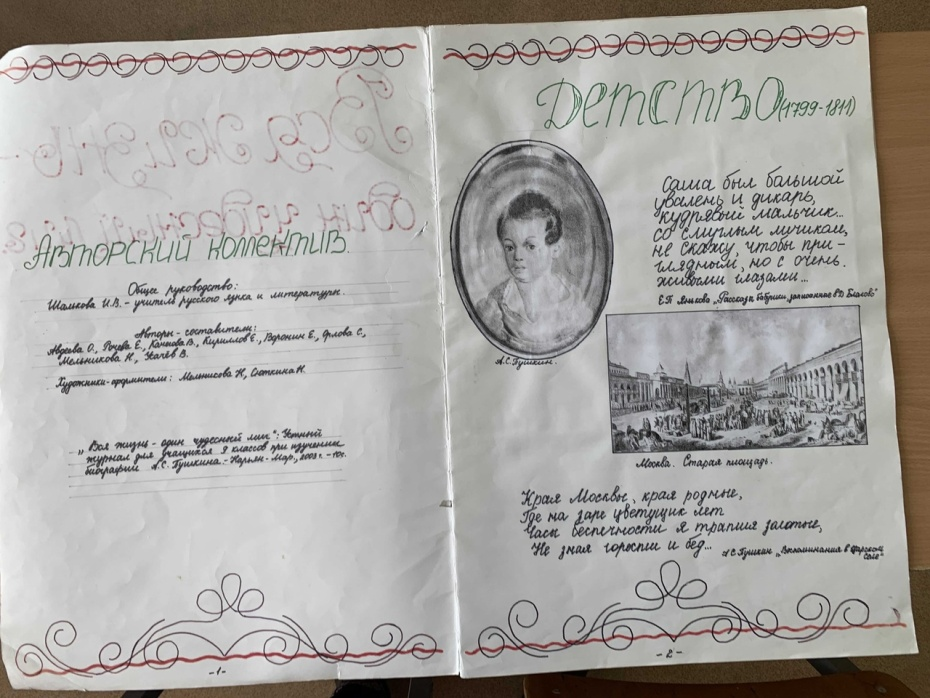 Авторский коллектив.
Общее руководство:
Шалкова И.В. - учитель русского языка и литературы.
Авторы - составители:
Авдеева О., Рочева Е., Канюкова В., Кириллов Е., Воронин Е., Орлова С.,
Мельникова Н., Усачёв В.
Художники-оформители: Мельникова Н., Сяткина Н.
„Вся жизнь - один чудесный миг": Устный
журнал для учащихся 9 классов при изучении
биографии А.С. Пушкина. - Нарьян-Мар, 2003 г. - 10с.
-1-
Детство (1799-1811)
Саша был большой
увалень и дикарь,
кудрявый мальчик...
со смуглым личиком,
не скажу, чтобы при-
глядным, но с очень
живыми глазами...
Е.П. Янькова „Рассказы бабушки, записанные Д. Благово"
А.С. Пушкин.
Москва. Старая площадь.
Края Москвы, края родные,
Где на заре цветущих лет
Часы беспечности я тратил золотые,
Не зная горести и бед...
А.С. Пушкин „Воспоминания в Царском
Селе"
-2-